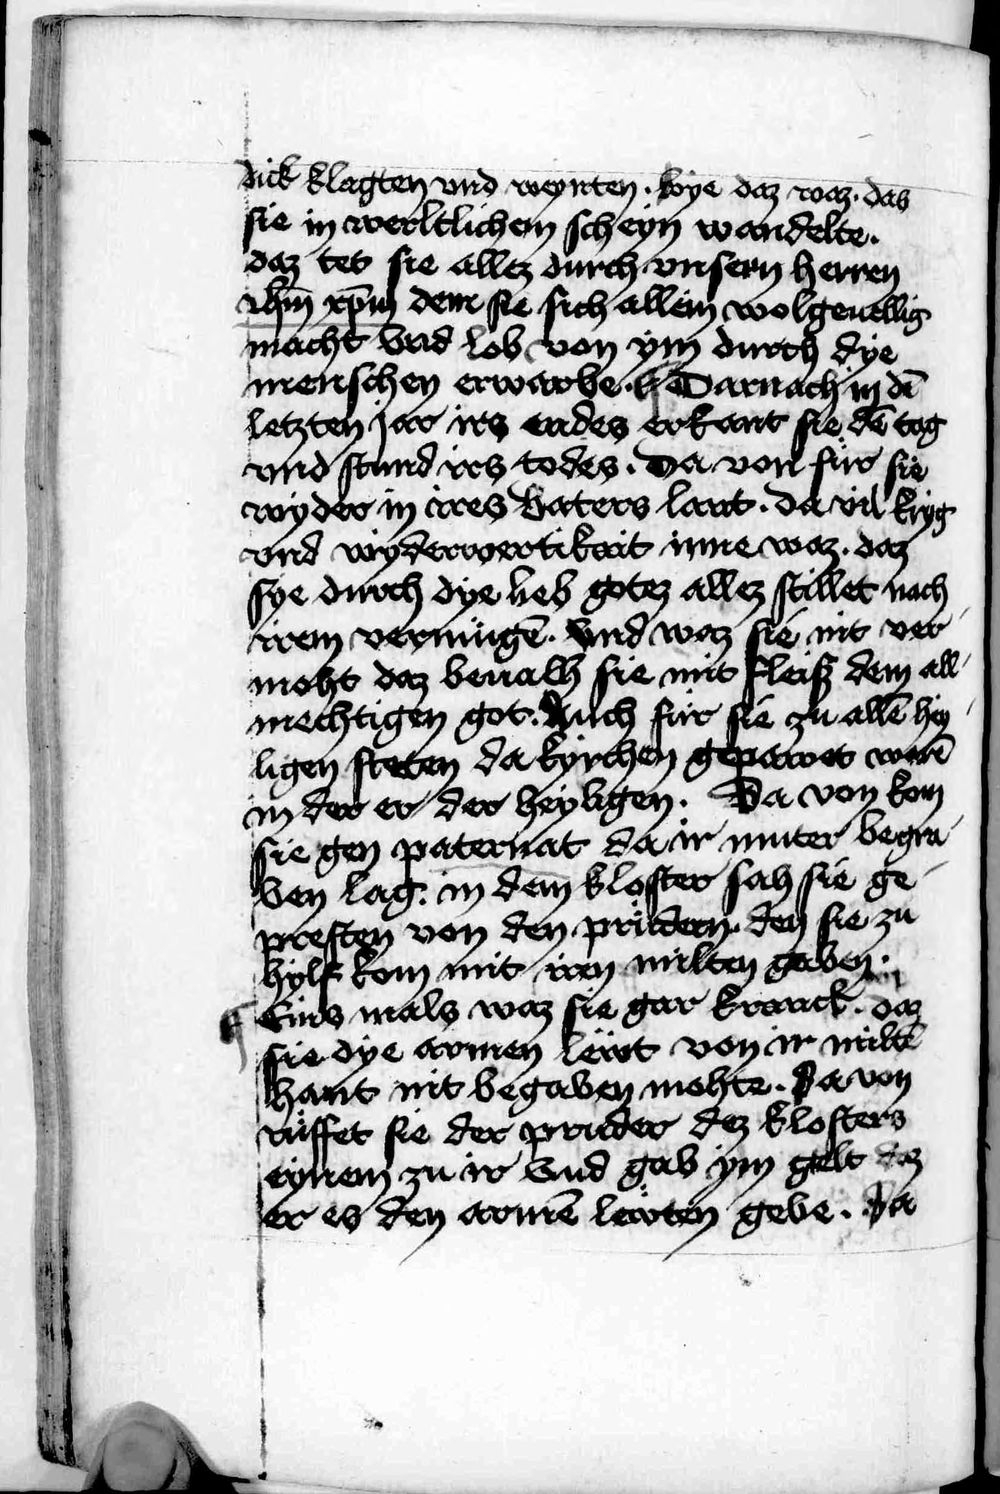 dick klagten vnd weynten. wye daz waz. das
sie in werltlichem scheyn wandelte.
daz tet sie allez durch vnsern herren
ihm̄ xpm̄ dem sie sich allein wolgeuellig
macht vnd lob von ym durch dye
menschen erwarbe. Darnach in dē
letzten jar irs endes erkant sie dē tag
vnd stund irs todes. Da von für sie
wyder in ires vaters lant. da vil kryg
vnd wyderwertikait inne waz. daz
sye durch dye lieb gotez allez stillet nach
irem vermügē. Vnd waz sie nit ver
moht daz beualh sie mit fleiß dem all
mechtigen got. Auch für sie zu allē hey
ligen steten da kyrchen gepawet warē
in der er der heyligen. Da von kom
sie gen paternat da ir muter begra
ben lag. in dem kloster sah sie ge
presten von den prüdern. den sie zu
hylf kom mit iren milten gaben.
Eins mals waz sie gar kranck. daz
sie dye armen leüt von ir miltē
hant nit begaben mohte. Da von
rüffet sie der prüder dez klosters
eynem zu ir vnd gab ym gelt daz
er es den armē leüten gebe. Da